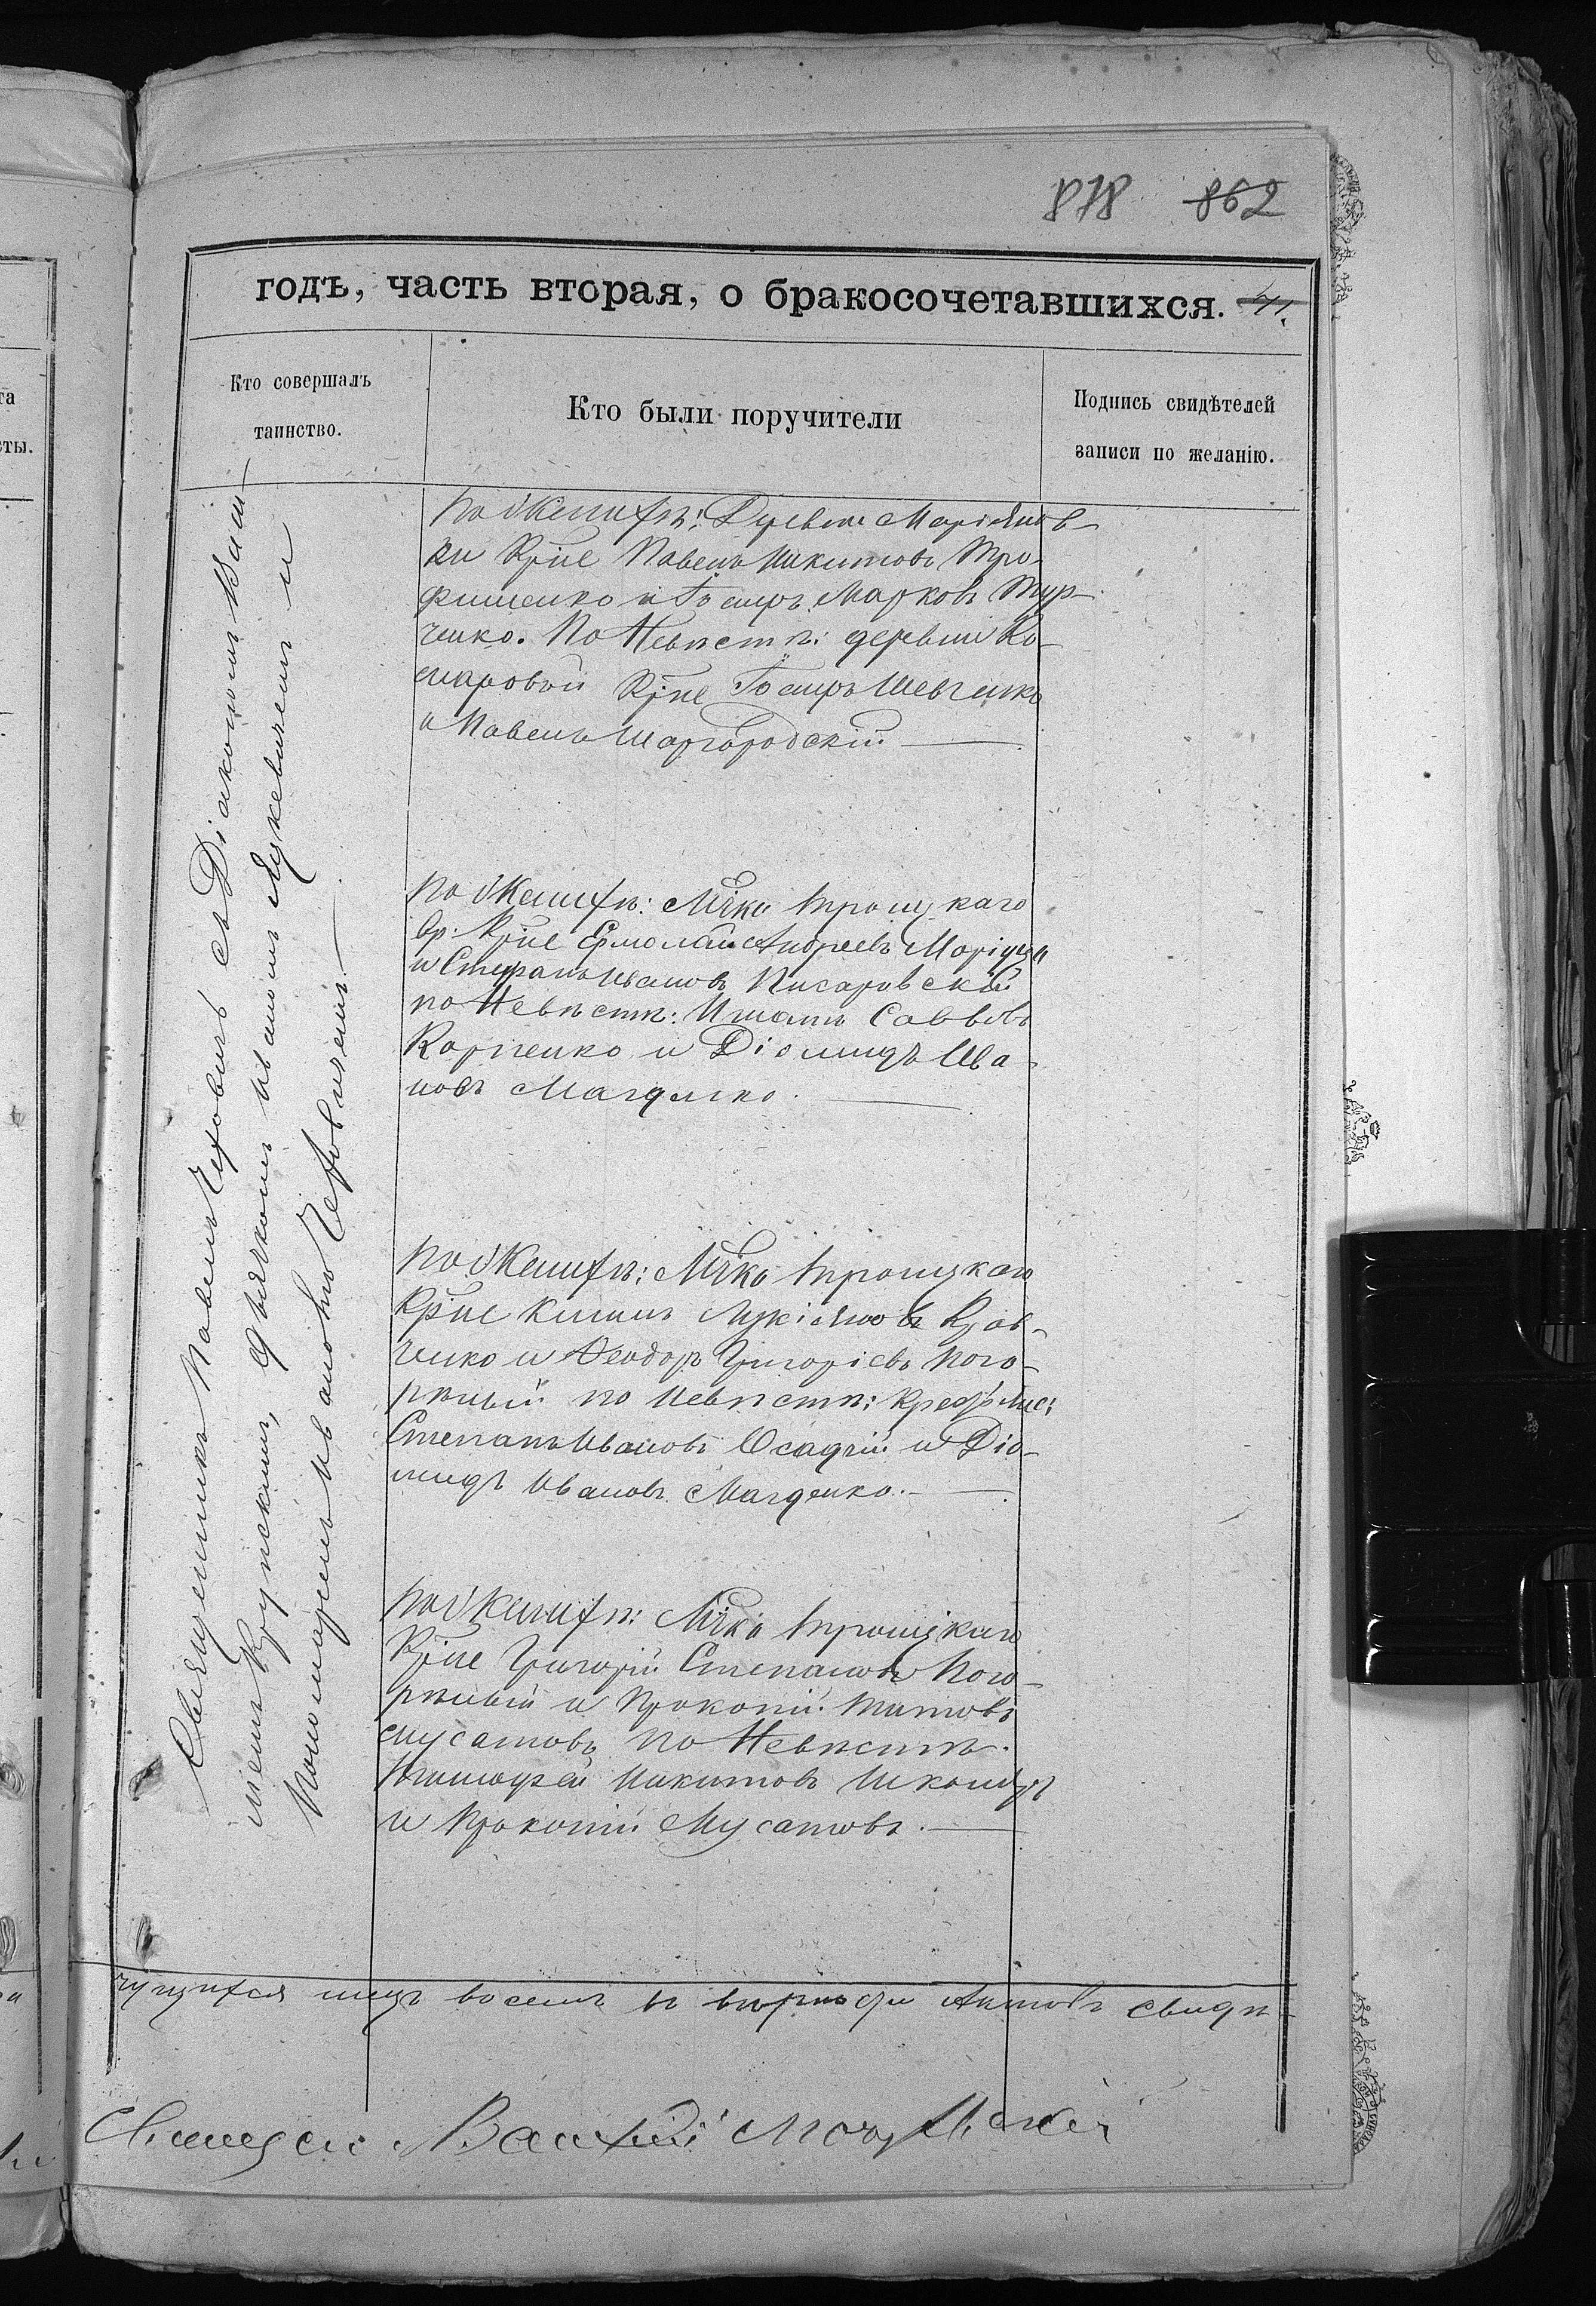 878 862
годъ, часть вторая, о бракосочетавшихся. 41.
Кто совершалъ
таинство.
Кто были поручители
Подпись свидѣтелей
записи по желанію.
Священникъ Павелъ Чеховичъ съ Діакономъ
Крупскимъ, дьячкомъ Иваномъ Лукевичемъ и
Пономаремъ Иваномъ Чеховичемъ.
По Женихѣ: Деревни Маріянов-
ки Кр̃не Павелъ Никитовъ Тро-
фименко и Марковъ Тур-
ченко. По Невѣстѣ: деревни Ко-
маровой Кр̃не Шевченко
и Павелъ Шаргородскій
По Женихѣ: Мѣчка Троицкаго
вр. Кр̃не Ермолай Андреевъ
и Стефанъ Ивановъ Писаровскій
по Невѣстѣ: Игнатъ Саввовъ
Карпенко и Діомидъ Ива-
новъ Магденко.
По Женихѣ: Мѣчка Троицкаго
Кр̃не Лукіяновъ Крав-
ченко и Ѳеодоръ Григоріевъ Пого-
рѣлый по Невѣстѣ:
Степанъ Ивановъ Осадчій и Діо-
мидъ Ивановъ Магденко.
По Женихѣ: Мѣчка Троицкаго
Кр̃не Григорій Степановъ Пого-
рѣлый и Прокопій Титовъ
Мусатовъ по Невѣстѣ.
Тимофей Никитовъ
и Прокопій Мусатовъ.
восемь въ актовъ свидѣ-
Василій